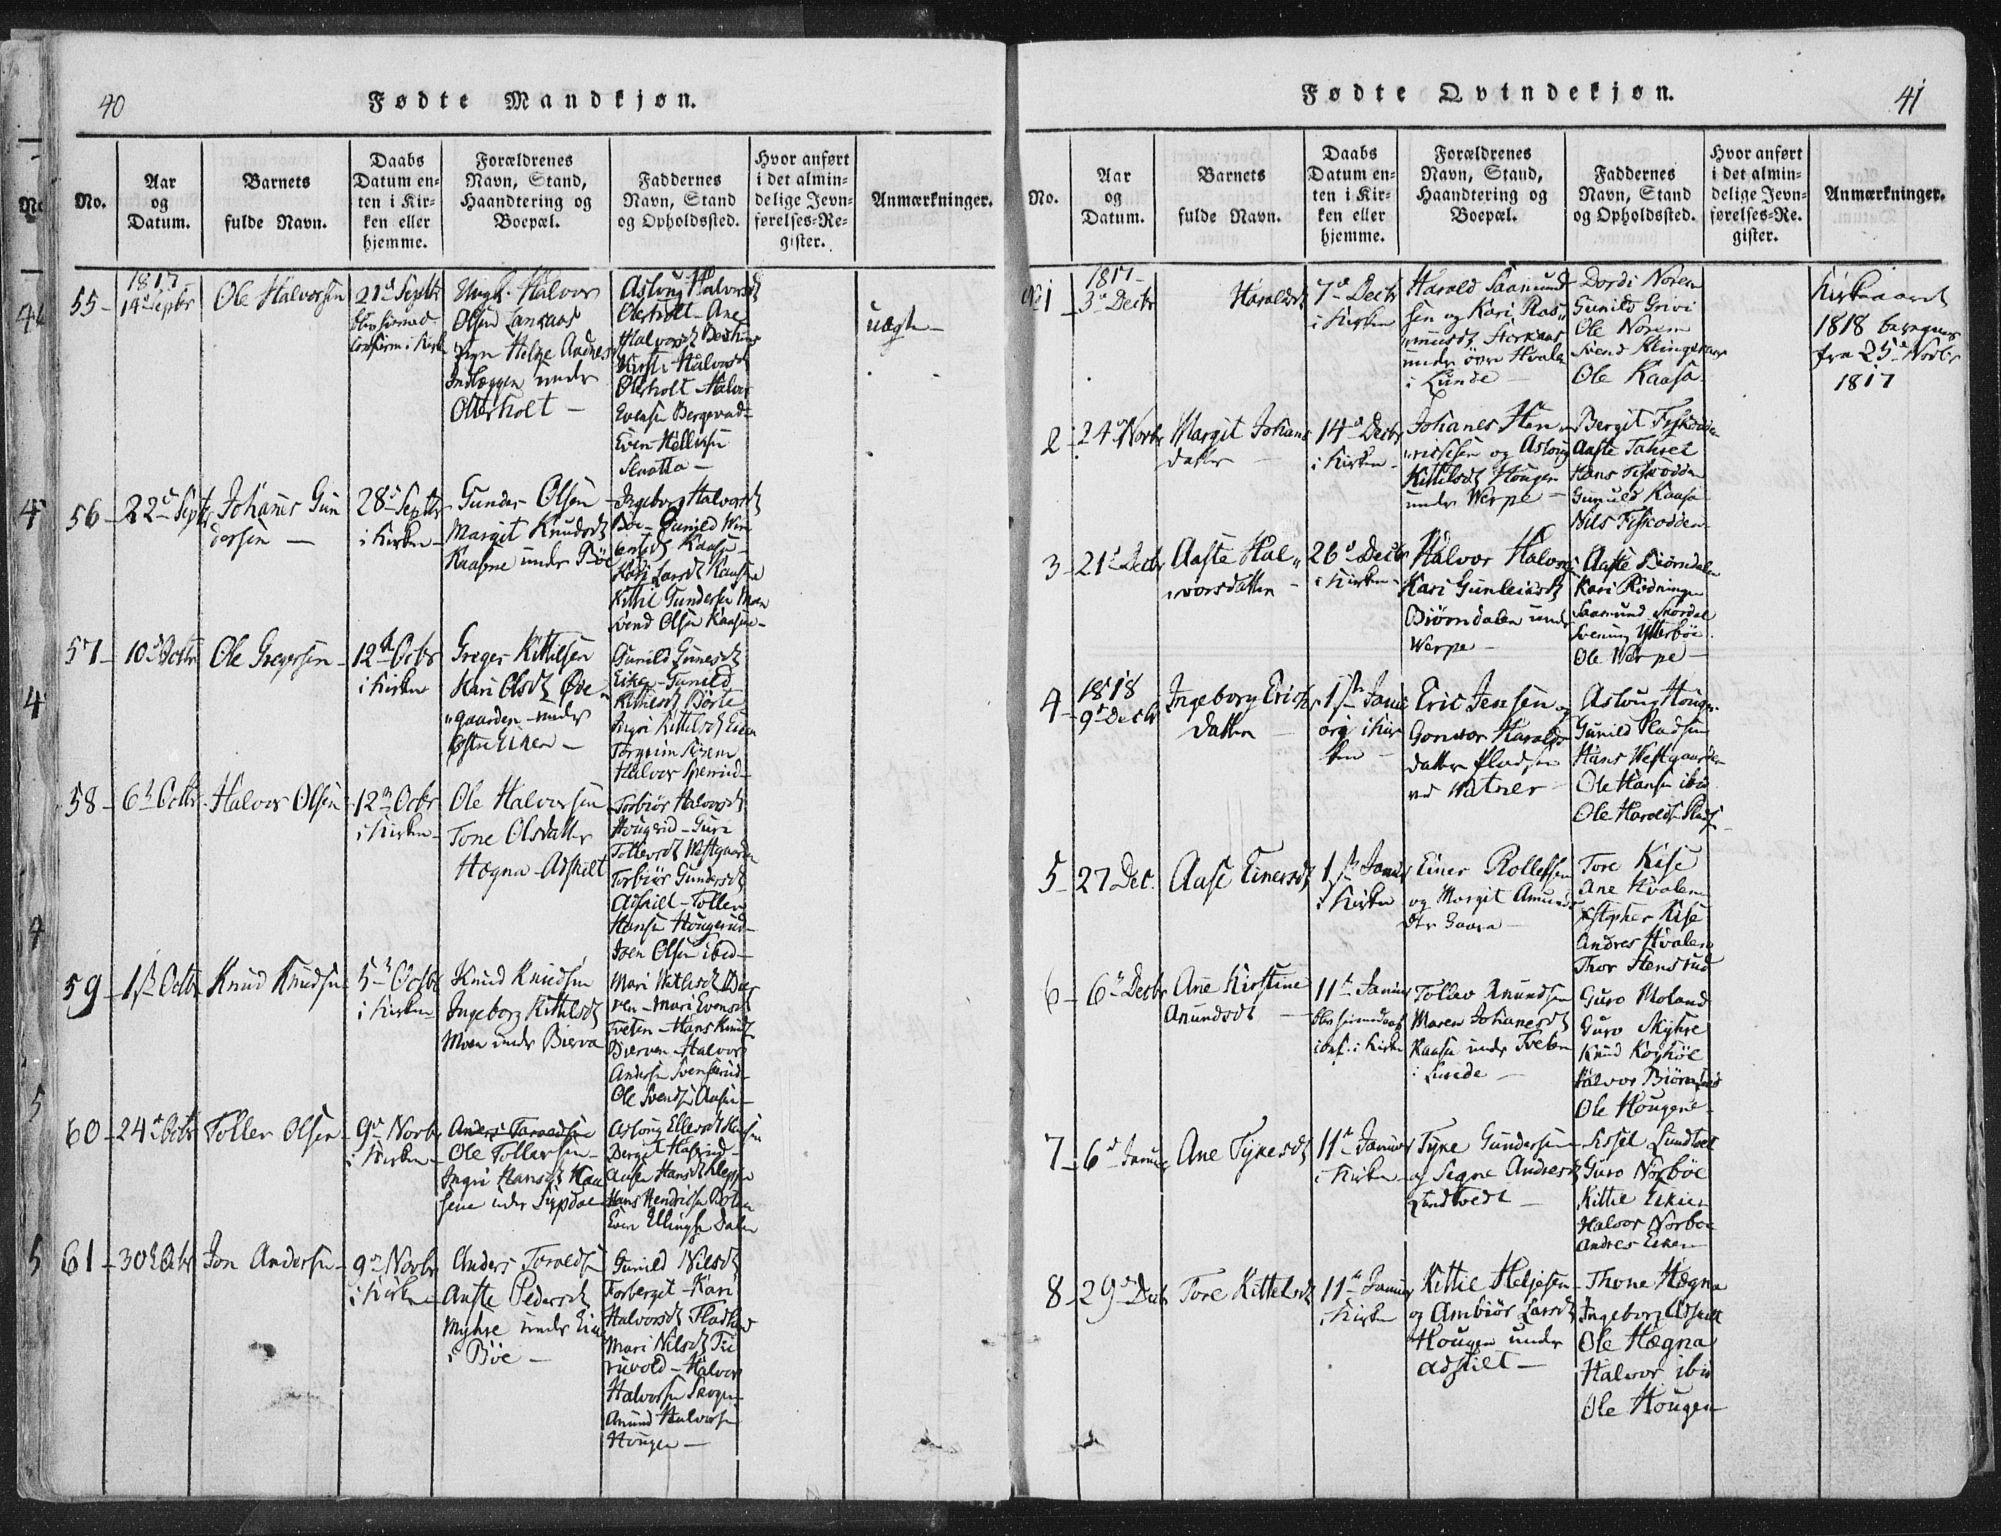 40
Fødte Mandkjøn.
No.
Aar
og
Datum.
Barnets
fulde Navn.
Daabs
Datum en-
ten i Kir-
ken eller
hjemme.
Forældrenes
Navn, Stand,
Haandtering og
Boepæl.
Faddernes
Navn, Stand
og Opholdssted.
Hvor anført
i det almin-
delige Jevn-
førelses-Re-
gister.
Anmærkninger.
55-
1817
14d Septbr
Ole Halvorsen
21d Septbr
i Kirk
Ungk. Halvor
Olsen Lankaas
Pigen Helge Aadnes
Indlæggen under
Oterholt -
Asloug Halvorsdt
Oterholt - Ane
Halvorsdt
Kirsti Halvorsdt
Oterholt - Halvor
Evensen Bergerud-
Even Kittilsen
uægte -
56-
22d Septbr
Johanes Gun
dersen -
28d Septbr
i Kirken-
Gunder Olsen
Margit Knudsdt
Kaasene under Böe
Ingeborg Halvorsdt
Böe - Gunild
Kaase-
Kari Larsdt Kaasene
Kittil Gundersen Moen
Svend Olsen Kaasene-
57-
10d Octbr
Ole Gregersen-
12te Octbr
i Kirken
Greger Kittilsen
Kari Olsdt Øve-
"gaarden under
Østre Eiken -
Gunild
Eika - Gunild
Kittilsdt Børte
Ingri Kittilsdt Eika
Torgrim
Halvor
58-
6te Octbr
Halvor Olsen
12te Octbr
i Kirken-
Ole Halvorsen
Tone Olsdatter
Hægna - Adskilt
Torbiör Halvorsdt
Hougerud - Guri
Tollevsdt Westgaarden
Torbiör Gundersdt
Adskilt - Tollev
Hansen Hougerud-
Iver Olsen ibid-
59-
1ste Octbr
Knud Knudsen
5te Octbr
i Kirken-
Knud Knudsen
Ingeborg Kittilsdt
Moen under Bierva
Mari Kittilsdt Bier
ven - Mari Evensdt
Tveten - Hans Knuds
Bierven - Halvor
Andersen Svenserud-
Ole Svendsen Aasen-
60-
24d Octbr
Tollev Olsen-
9de Novbr
i Kirken-
Anders Taraldsen
Ole Tollevsen-
Ingri Hansdt Kaa
sene under Sippdae
Aslong Ellevsdt Kaasen
Bergit Haferud-
Aasne Hansdt Kleppen
Hans Hendrichsen Bolken
Even Ellingsen Dalen
61-
30te Octbr
Jon Andersen-
9de Novbr
i Kirken
Anders Taraldsen
Aaste Pedersdt
Myhre under Eika
i Böe -
Gunild Nilsdt
Forberget - Kari
Halvorsdt
Mari Nilsdt Fu
ruvold - Halvor
Halvorsen
Amund Halvorsen
Hougen -
41
Fødte Qvindekjøn.
No.
Aar
og
Datum.
Barnets
fulde Navn.
Daabs
Datum en-
ten i Kir-
ken eller
hjemme.
Forældrenes
Navn, Stand,
Haandtering og
Boepæl.
Faddernes
Navn, Stand
og Opholdssted.
Hvor anført
i det almin-
delige Jevn-
førelses-Re-
gister.
Anmærkninger.
No 1
1817-
3d Decbr
Haraldsdt
7de Decbr
i Kirken
Harald Saamund
sen og Kari Ras"
"musdt Storkaas
under övre Hvala
i Lunde -
Dordi Norem
Gunild Grivi
Ole Norem
Svend Klingekaas
Ole Kaasa
Kirkeaaret
1818 beregnes
fra 25de Novbr
1817
2-
24d Novbr
Margit Johans
datter
14d Decbr
i Kirken-
Johanes Hen-
"richsen og Aslong
Kittilsdt Hougen
under Werpe -
Bergit Fiskodden
Aaste Tahset
Hans Fiskodden
Gunuld Kaasa
Nils Fiskodden-
3-
21d Decbr
Aaste Hal"
"vorsdatter -
26d Decbr
i Kirken-
Halvor Halvors
Kari Gunleiksdt
Biörndalen under
Werpe -
Aaste Biörndalen
Kari Rödningen
Saamund Skordal
Svenung Ytterböe
Ole Werpe -
4-
1818
9d Decbr
Ingeborg Erichs
datter
1ste Janu
ari i Kir
ken -
Eric Jensen og
Gonvor Haralds
datter Pladsen
ved Watner-
Asloug Hougn
Gunild Pladsen
Hans Westgaarden
Ole Hansen ibid
Ole Haralds Plads
5-
27 Dec.
Aase Einersdt
1ste Januar
i Kirken
Einer Rollefsen
og Margit Amunds
dtr Gaara -
Tore Kise
Ane Hvalen
Kstopher Kise
Andres Hvalen
Thor Stensrud
6-
6te Decbr
Ane Kirstine
Anundsdt -
11te Januar
i Kirken
Tollev Anundsen
Maren Johanesdt
Kaasa under Tveten
i Lunde -
Guro Moland
Guro Myhre
Knud
Halvor
Ole Hougene-
7-
6d Januar
Ane Tykesdt
11te Januar
i Kirken-
Tyke Gundersen
og Segne Andresdt
Lundtvedt -
Sissel Lundtvet
Guro Norböe
Kittil Eiken
Halvor Norboe
Andres Eiken
8-
29de Decbr
Tore Kittelsdt
11te Januar
i Kirken
Kittil Heljesen
og Ambiör Larsdt
Hougen under
adskilt -
Thone Hægna
Ingeborg Adskilt
Ole Hægna
Halvor ibid
Ole Hougen